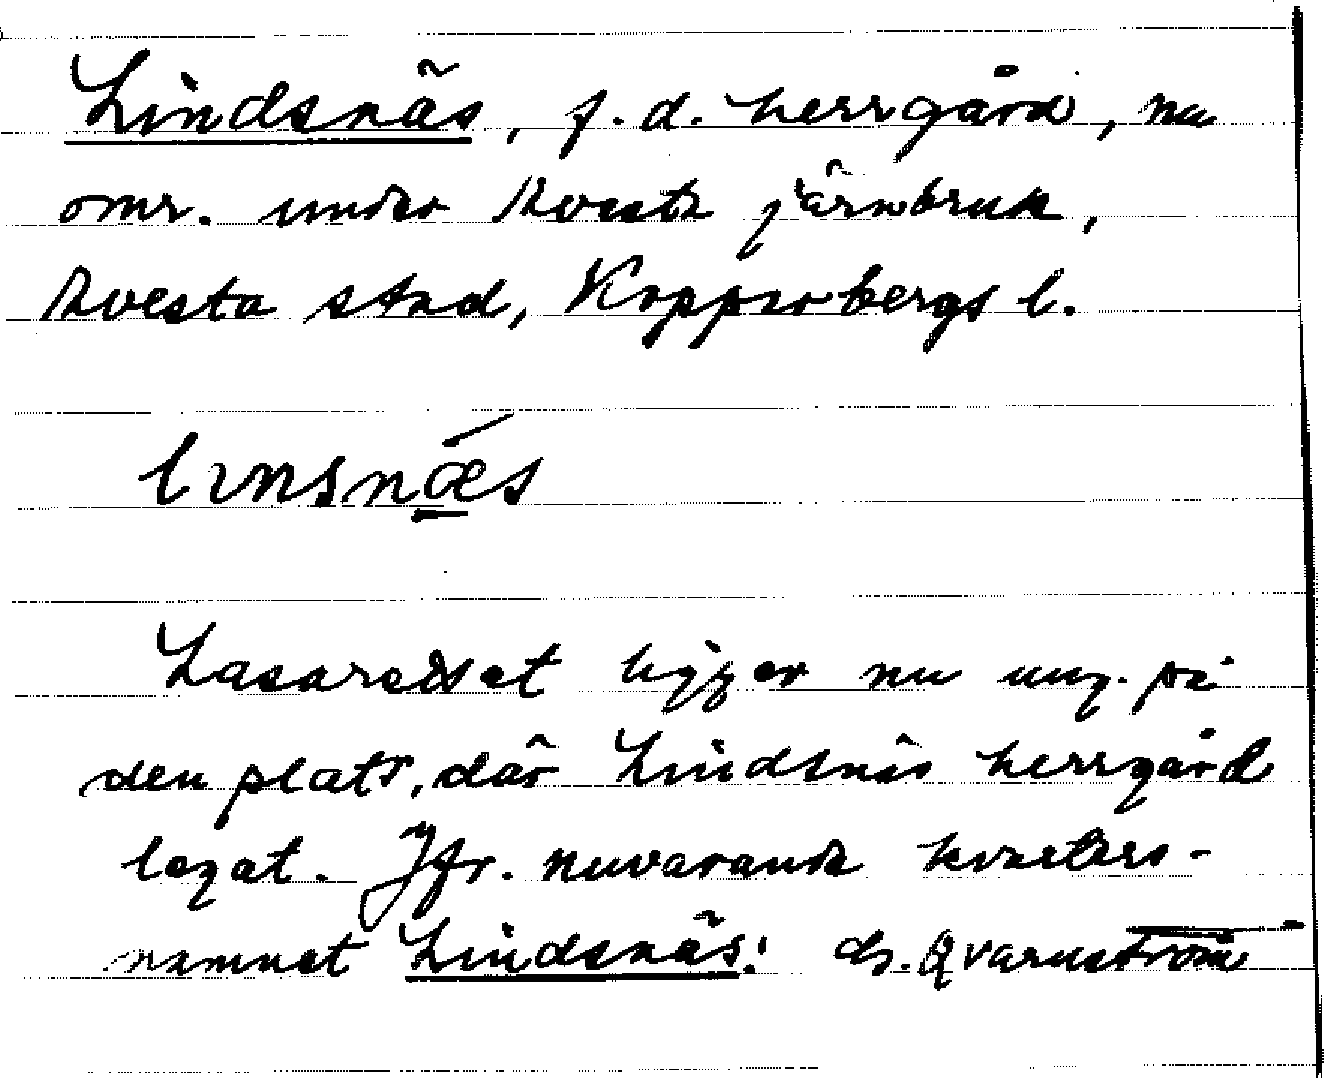 Lindsnäs, f.d. herrgård, nu
omr. under Avesta järnbruk,
Avesta stad, Kopparbergs l.
linsnǽ̲s
Lasarettet ligger nu ung. på
den plats, där Lindsnäs herrgård
legat. Jfr. nuvarande kvarters-
namnet Lindsnäs! Qvarnström